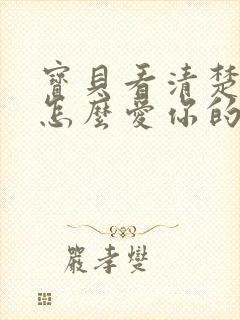 寶貝看清楚
怎麼愛你的
嚴孝燮